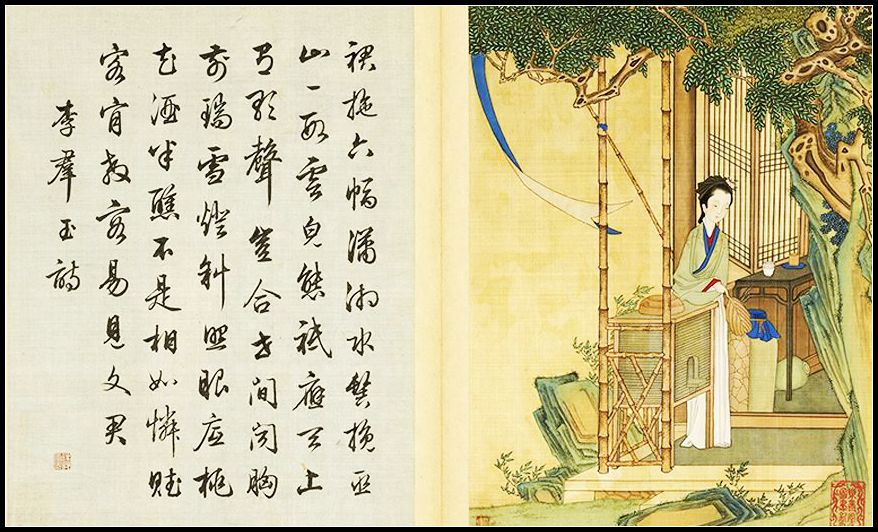 裙拖六幅瀟湘水鬢挽巫
山一段雲皃態祗應天上
有歌聲豈合世間聞胸
前瑞雪燈斜照眼底桃
花酒半醺不是相如憐賦
客肯教容易見文君
李羣玉詩